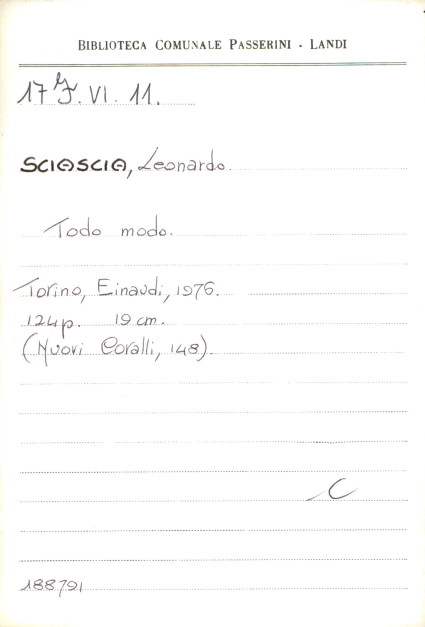 BIBLIOTECA COMUNALE PASSERINI - LANDI
17 J. VI. 11.
SCIASCIA, Leonardo
Todo modo.
Torino, Einaudi, 1976.
124p. 19 cm.
(Nuovi Coralli, 148).
C
188791